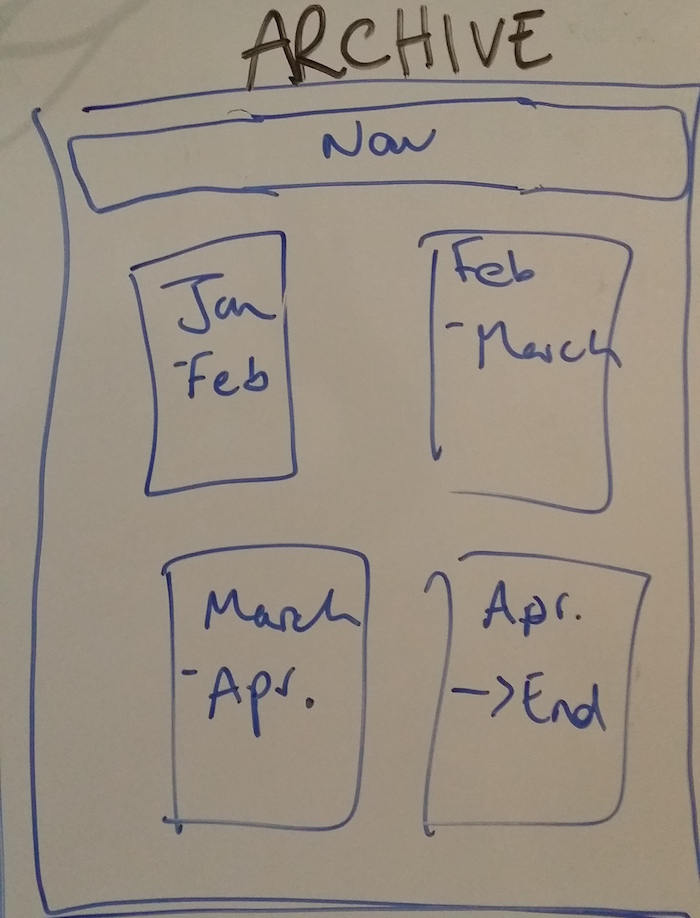 ARCHIVE
Nav
Jan
-Feb
Feb
-March
March
-Apr.
Apr.
->End